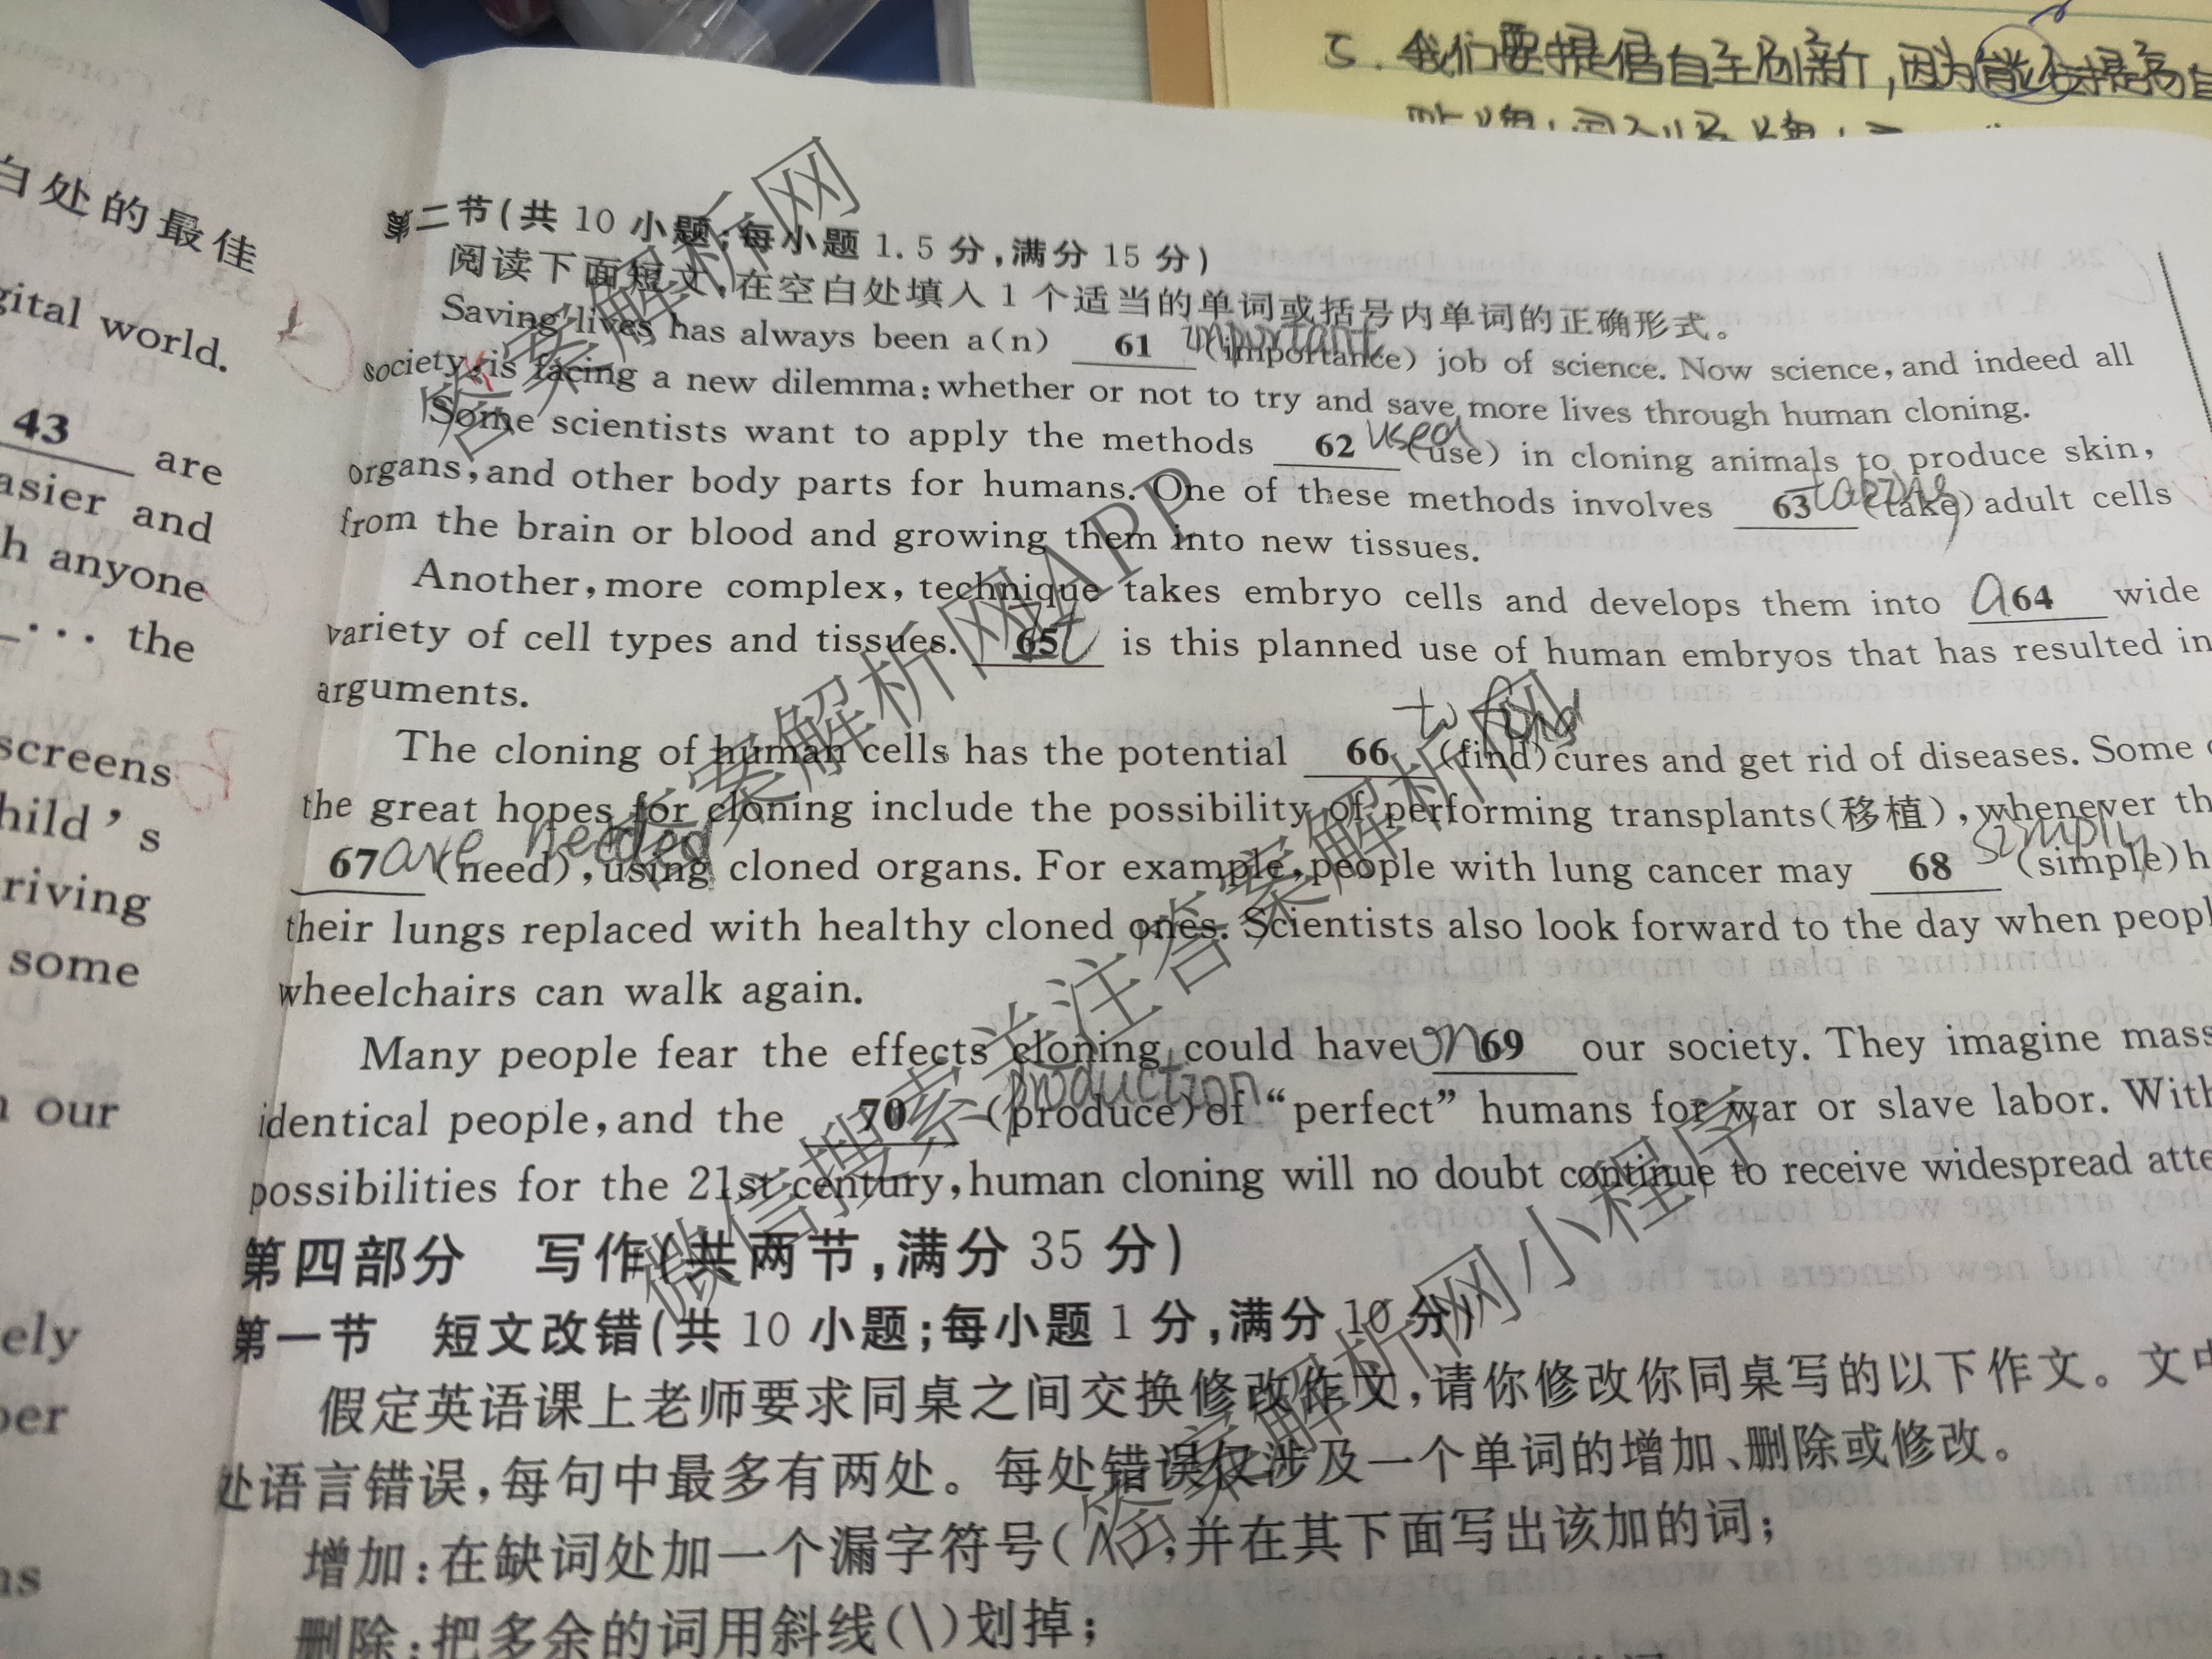 5. 我们要提倡自主创新,因为
白处的最佳
gital world.
43 are
asier and
h anyone
... the
screens
hild's
riving
some
our
ely
per
第二节(共 10 小题;每小题 1.5 分,满分 15 分)
阅读下面短文,在空白处填入 1 个适当的单词或括号内单词的正确形式。
Saving lives has always been a(n) 61 important (importance) job of science. Now science, and indeed all
society, is facing a new dilemma: whether or not to try and save more lives through human cloning.
Some scientists want to apply the methods 62 used (use) in cloning animals to produce skin,
organs, and other body parts for humans. One of these methods involves 63 taking (take) adult cells
from the brain or blood and growing them into new tissues.
Another, more complex, technique takes embryo cells and develops them into a 64 wide
variety of cell types and tissues. 65 It is this planned use of human embryos that has resulted in
arguments.
The cloning of human cells has the potential 66 to find (find) cures and get rid of diseases. Some
the great hopes for cloning include the possibility of performing transplants(移植), whenever th
67 are needed (need), using cloned organs. For example, people with lung cancer may 68 simply (simple) h
their lungs replaced with healthy cloned ones. Scientists also look forward to the day when peopl
wheelchairs can walk again.
Many people fear the effects cloning could have on 69 our society. They imagine mass
identical people, and the 70 production (produce) of "perfect" humans for war or slave labor. With
possibilities for the 21st century, human cloning will no doubt continue to receive widespread atte
第四部分 写作(共两节,满分 35 分)
第一节 短文改错(共 10 小题;每小题 1 分,满分 10 分)
假定英语课上老师要求同桌之间交换修改作文,请你修改你同桌写的以下作文。文中
处语言错误,每句中最多有两处。每处错误仅涉及一个单词的增加、删除或修改。
增加:在缺词处加一个漏字符号(∧),并在其下面写出该加的词;
删除:把多余的词用斜线(\)划掉;
答案解析网
答案解析网APP
微信搜索关注答案解析网
答案解析网小程序